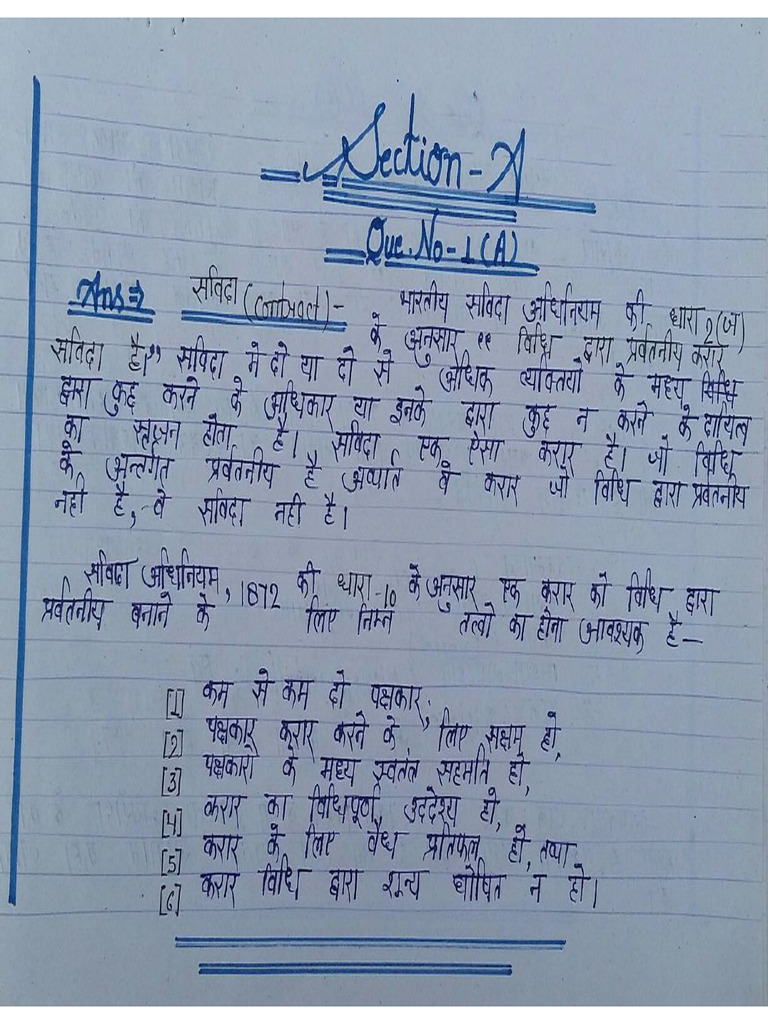 Section-A
Que. No-1(A)
Ans⇒ सविदा (Contract) - भारतीय सविदा अधिनियम की धारा 2(ज)
के अनुसार "विधि द्वारा प्रर्वतनीय करार
सविदा है।" सविदा मे दो या दो से अधिक व्यक्तियो के मध्य विधि
द्वारा कुछ करने के अधिकार या इनके द्वारा कुछ न करने के दायित्व
का सृजन होता है। सविदा एक ऐसा करार है। जो विधि
के अन्तर्गत प्रर्वतनीय है अर्थात वे करार जो विधि द्वारा प्रर्वतनीय
नही है, वे सविदा नही है।
सविदा अधिनियम, 1872 की धारा-10 के अनुसार एक करार को विधि द्वारा
प्रर्वतनीय बनाने के लिए निम्न तत्वो का होना आवश्यक है—
[1] कम से कम दो पक्षकार,
[2] पक्षकार करार करने के लिए सक्षम हो,
[3] पक्षकारो के मध्य स्वतंत्र सहमति हो,
[4] करार का विधिपूर्ण उददेश्य हो,
[5] करार के लिए वैध प्रतिफल हो, तथा
[6] करार विधि द्वारा शून्य घोषित न हो।